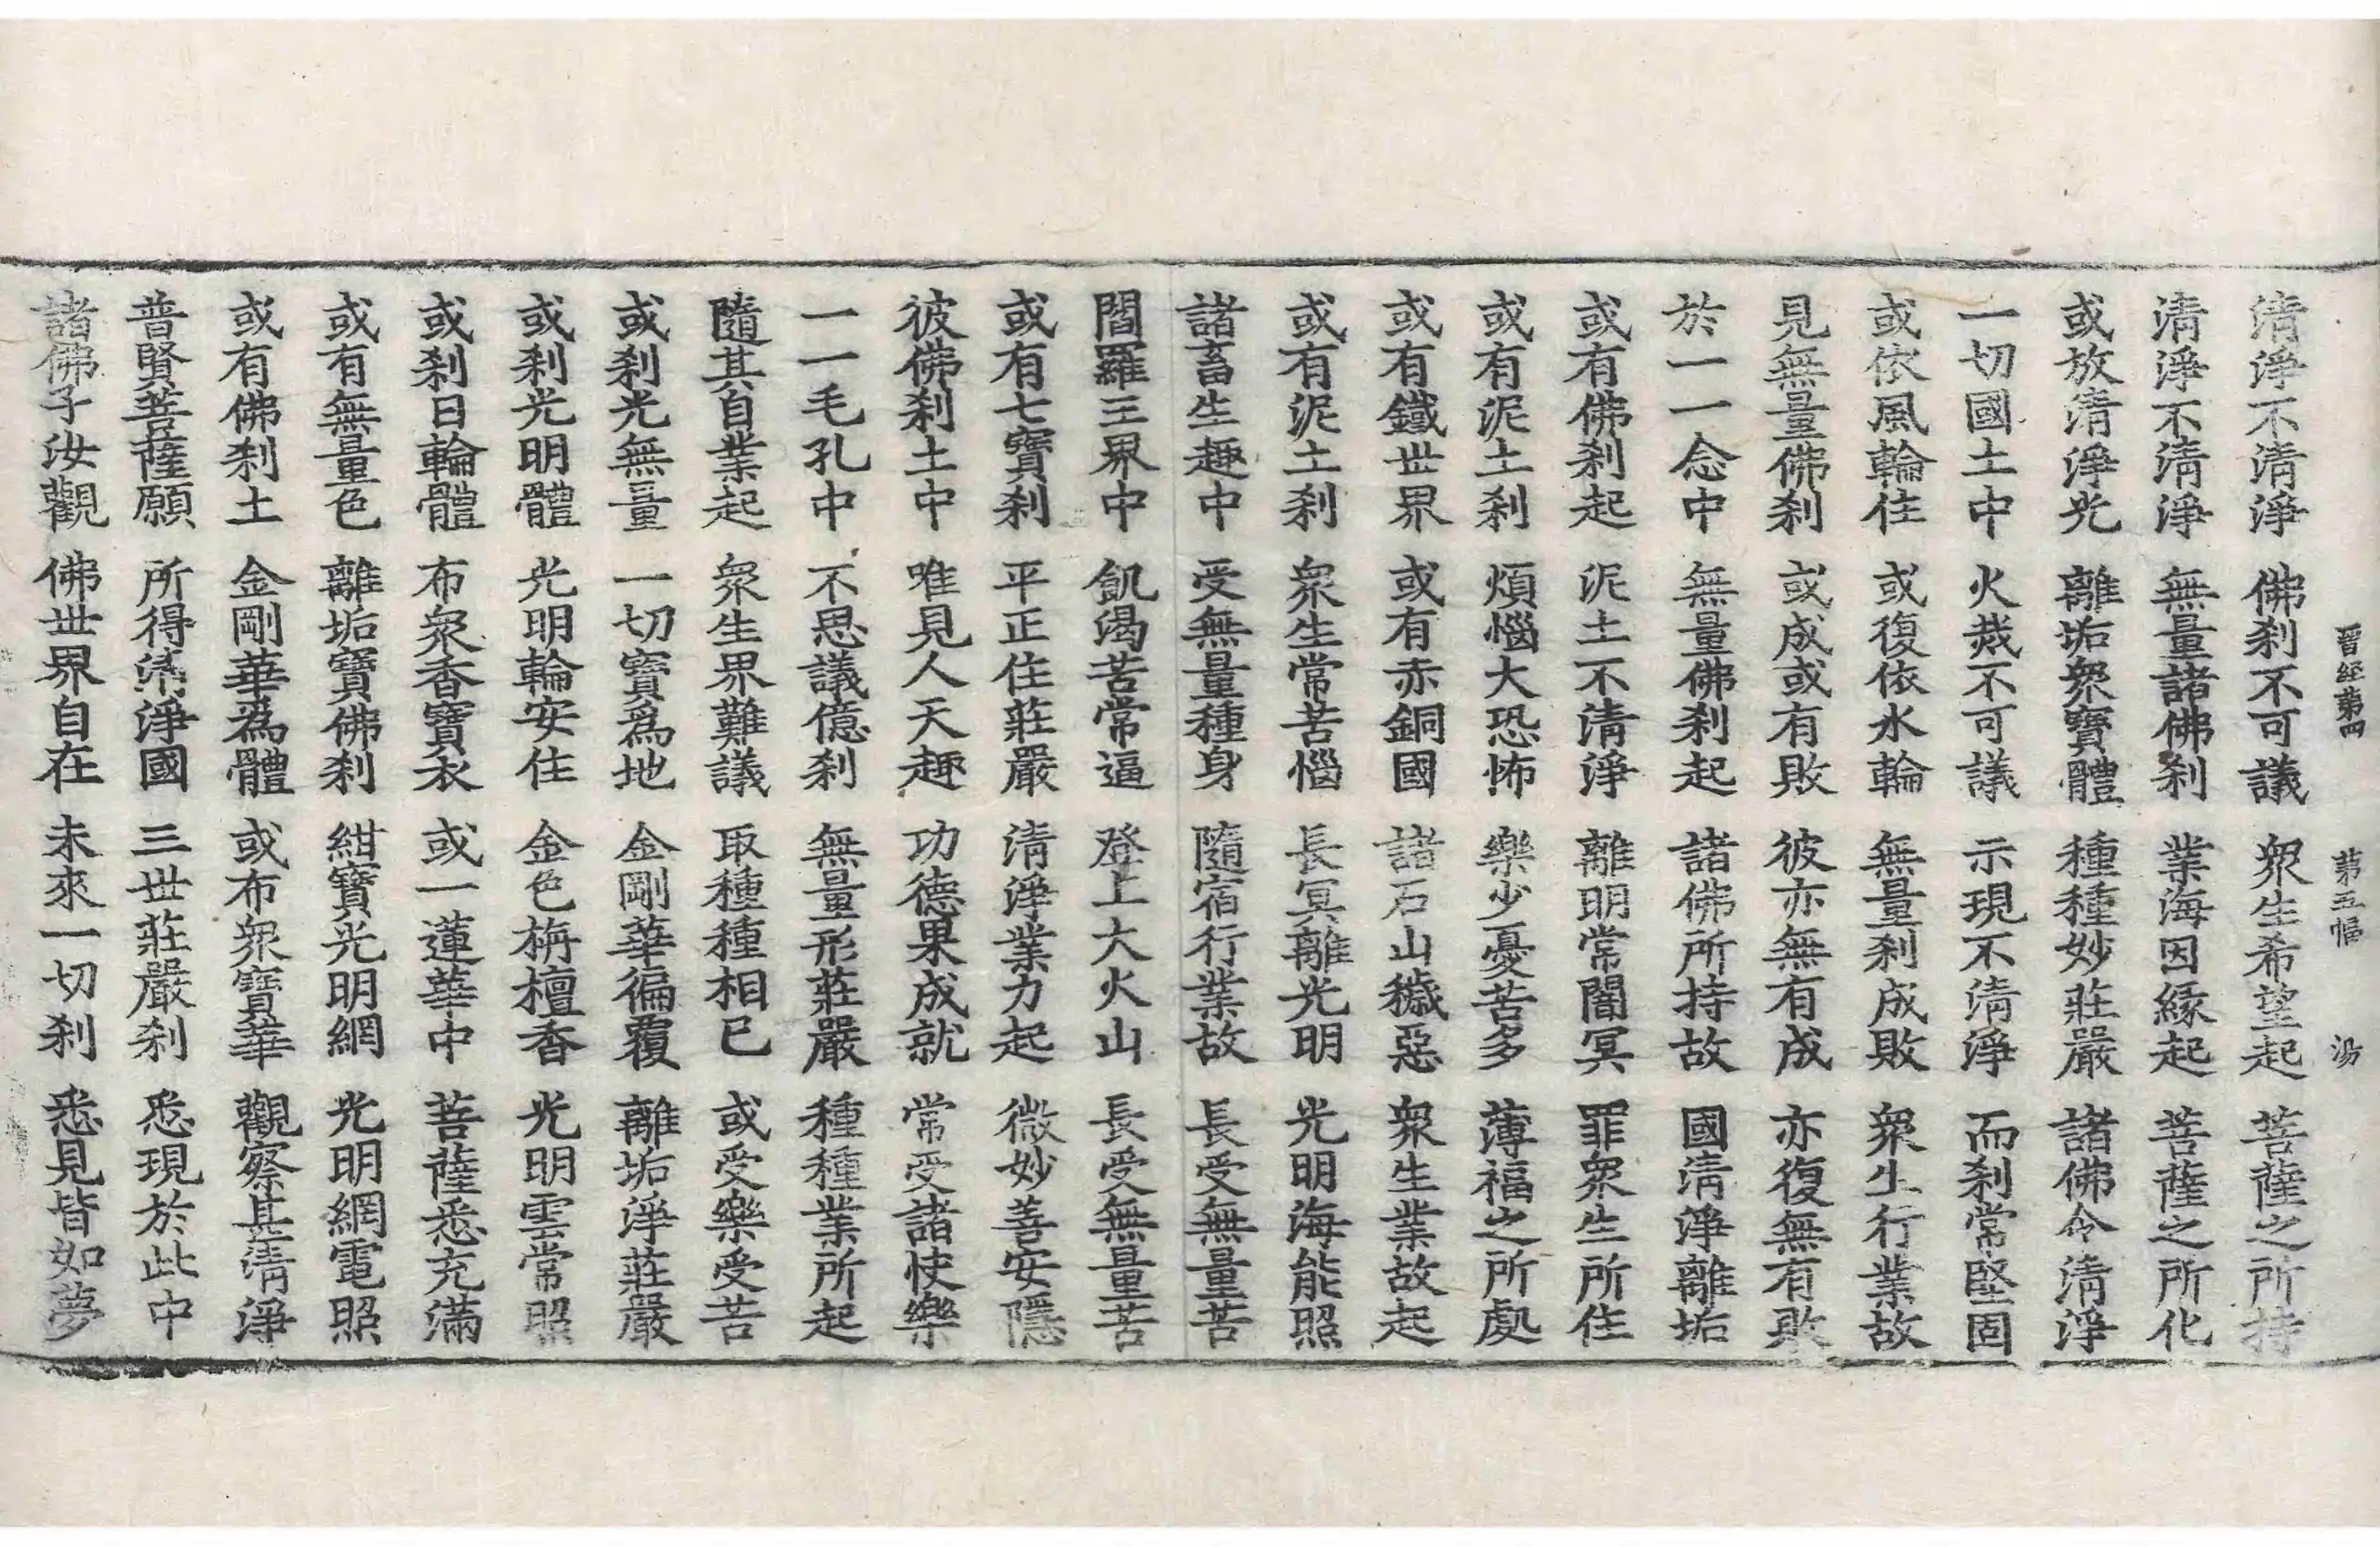 晋經第四 第五幅 湯
清淨不清淨 佛刹不可議 衆生希望起 菩薩之所持
清淨不清淨 無量諸佛刹 業海因縁起 菩薩之所化
或放清淨光 離垢衆寶體 種種妙莊嚴 諸佛令清淨
一切國土中 火烖不可議 示現不清淨 而刹常堅固
或依風輪住 或復依水輪 無量刹成敗 衆生行業故
見無量佛刹 或成或有敗 彼亦無有成 亦復無有敗
於一一念中 無量佛刹起 諸佛所持故 國清淨離垢
或有佛刹起 泥土不清淨 離明常闇冥 罪衆生所住
或有泥土刹 煩惱大恐怖 樂少憂苦多 薄福之所處
或有鐵世界 或有赤銅國 諸石山穢惡 衆生業故起
或有泥土刹 衆生常苦惱 長冥離光明 光明海能照
諸畜生趣中 受無量種身 隨宿行業故 長受無量苦
閻羅王界中 飢渴苦常逼 登上大火山 長受無量苦
或有七寶刹 平正住莊嚴 清淨業力起 微妙善安隱
彼佛刹土中 唯見人天趣 功德果成就 常受諸快樂
一一毛孔中 不思議億刹 無量形莊嚴 種種業所起
隨其自業起 衆生界難議 取種種相已 或受樂受苦
或刹光無量 一切寶爲地 金剛華徧覆 離垢淨莊嚴
或刹光明體 光明輪安住 金色栴檀香 光明雲常照
或刹日輪體 布衆香寶衣 或一蓮華中 菩薩悉充滿
或有無量色 離垢寶佛刹 紺寶光明網 光明網電照
或有佛刹土 金剛華爲體 或布衆寶華 觀察甚清淨
普賢菩薩願 所得清淨國 三世莊嚴刹 悉現於此中
諸佛子汝觀 佛世界自在 未來一切刹 悉見皆如夢